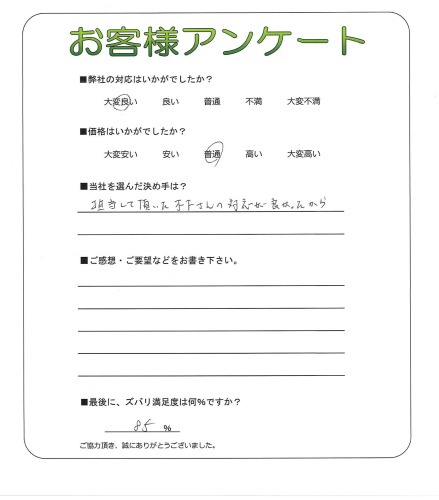 お客様アンケート
■弊社の対応はいかがでしたか？
大変良い 良い 普通 不満 大変不満
■価格はいかがでしたか？
大変安い 安い 普通 高い 大変高い
■当社を選んだ決め手は？
担当して頂いた木下さんの対応が良かったから
■ご感想・ご要望などをお書き下さい。
■最後に、ズバリ満足度は何％ですか？
85 ％
ご協力頂き、誠にありがとうございました。